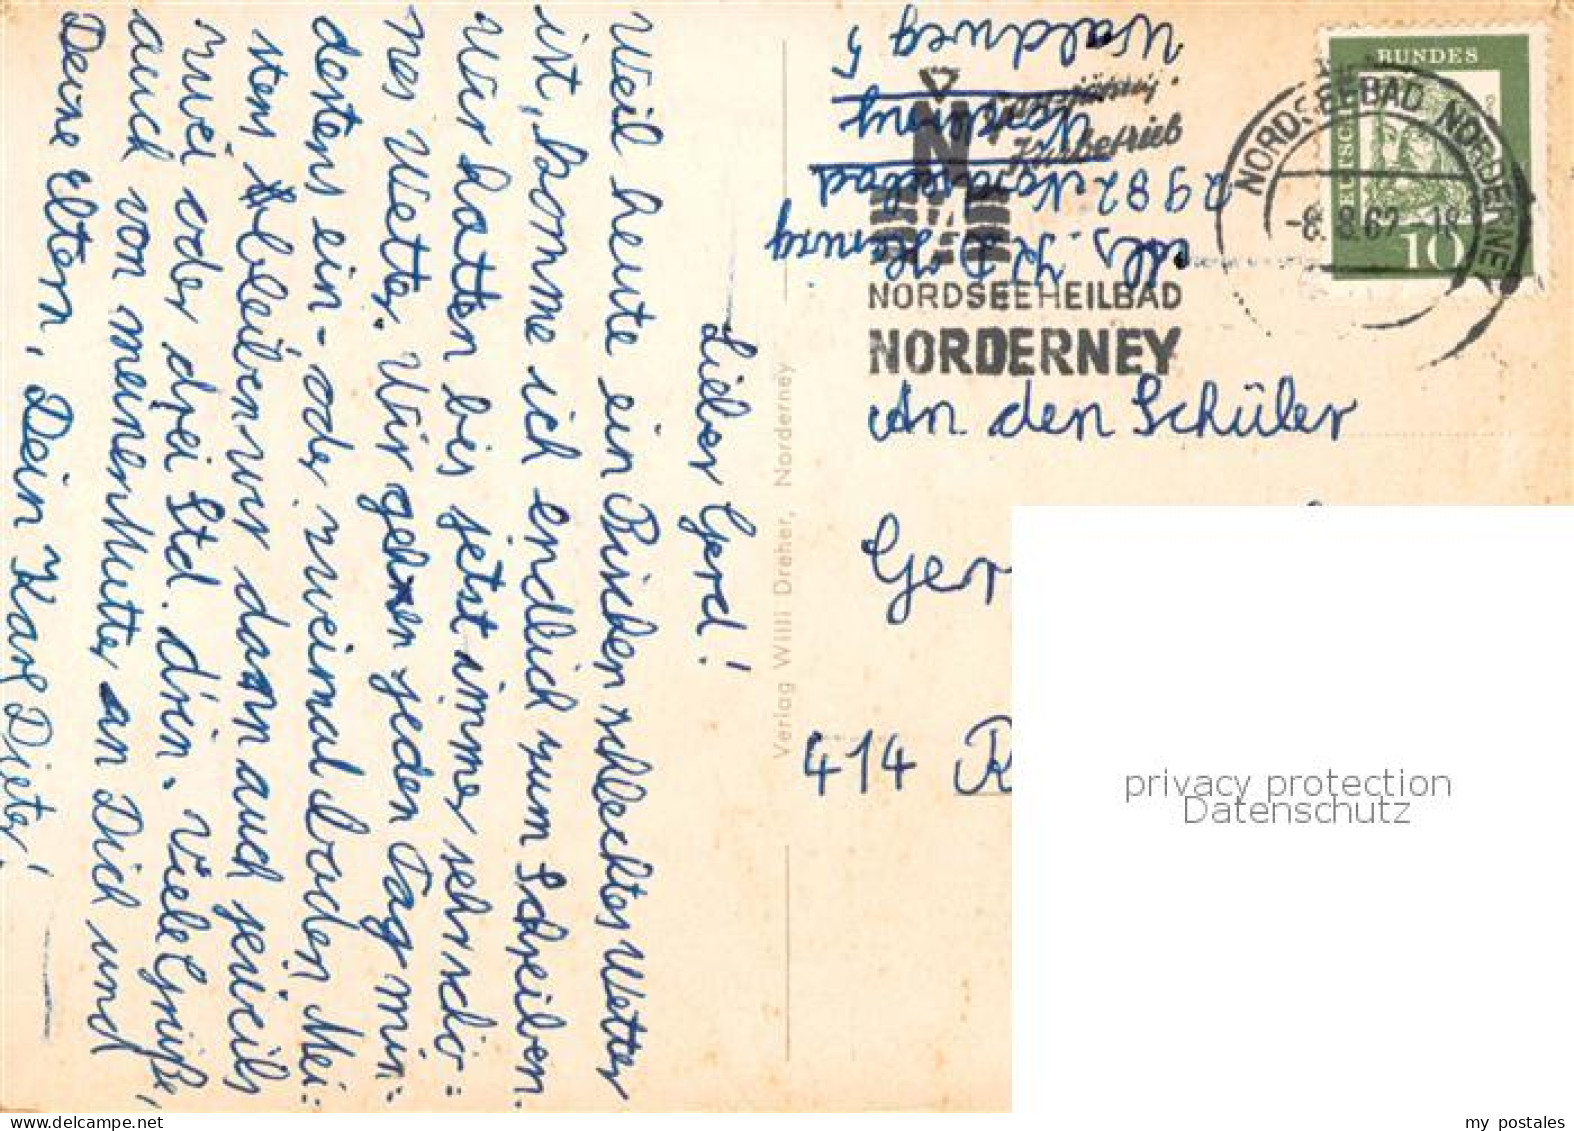 Lieber Gerd!
Weil heute ein Bischen schlechtes Wetter
ist, komme ich endlich zum Schreiben.
Wir hatten bis jetzt immer sehr schö=
nes Wetter. Wir gehen jeden Tag min=
destens ein- oder zweimal baden. Mei=
stens bleiben wir dann auch jeweils
zwei oder drei Std. drin. Viele Grüße,
auch von meiner Mutter an Dich und
Deine Eltern, Dein Karl Dieter!
Verlag Willi Dreher, Norderney
Abs. K. D.
2982 Nordseebad
Norderney
Waldweg 5
Ganzjährig.
Kurbetrieb
N
NORDSEEHEILBAD
NORDERNEY
NORDSEEBAD NORDERNEY
-8. 8. 62 -18
BUNDES
DEUTSCHE
10
An den Schüler
Ger
414 R
privacy protection
Datenschutz
my postales